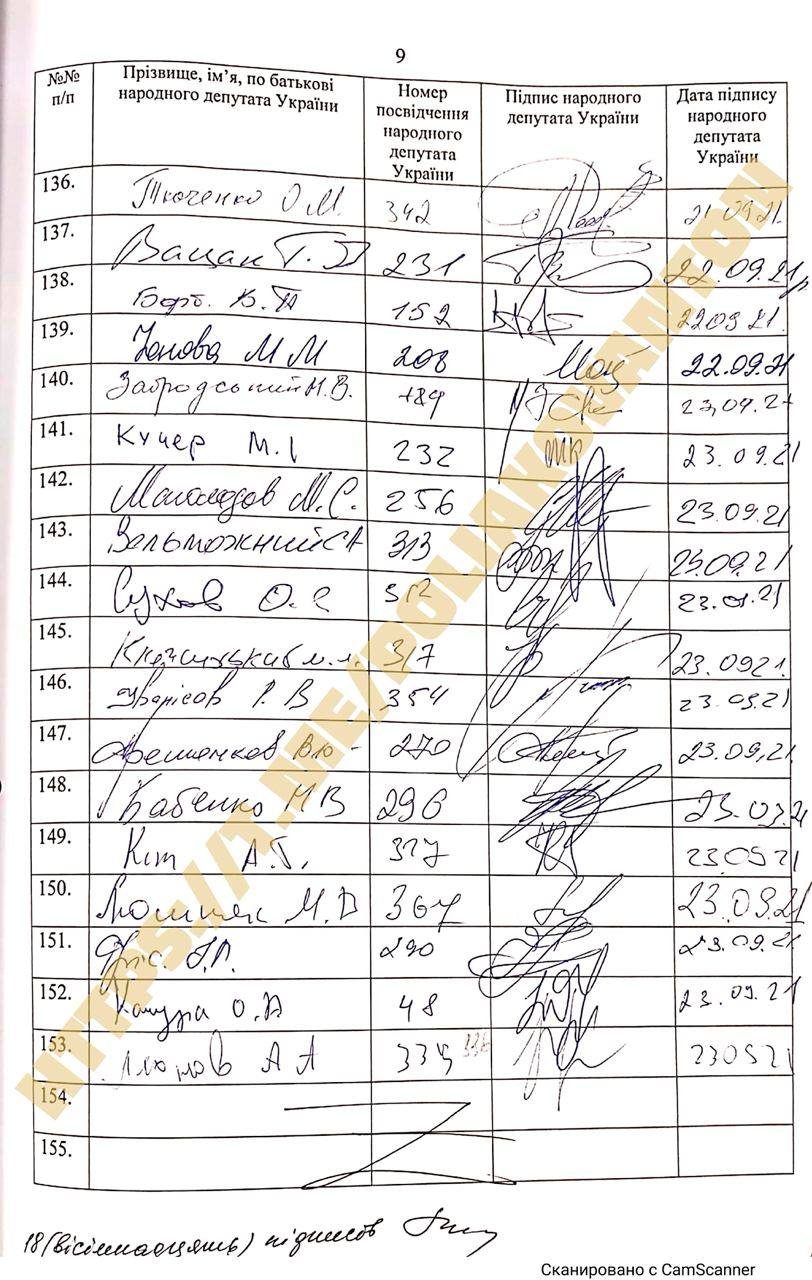 9
№№ п/п Прізвище, ім’я, по батькові народного депутата України Номер посвідчення народного депутата України Підпис народного депутата України Дата підпису народного депутата України
136. Ткаченко О.М. 342 21.09.21.
137. Вацак Г.А 231 22.09.21р
138. Борт В.П 152 22.09.21.
139. Іонова М М 208 22.09.21
140. Забродський М.В. 23.09.21
141. Кучер М.І 232 23.09.21
142. М.С. 256 23.09.21
143. Вельможний С А 313 23.09.21
144. Сухов О.С 312 23.09.21
145. 317 23.09.21.
146. Р. В 354 23.09.21
147. 270 23.09.21.
148. Бабенко М В 296 23.09.21
149. Кіт А.Б. 327 23.09.21
150. М. В 364 23.09.21
151. Фріс І.П. 290 23.09.21
152. О.А 48 23.09.21
153. А А 335 336 23.09.21
154.
155.
18 (вісімнадцять) підписів
HTTPS://T.ME/POLIAKOVANTON
Сканировано с CamScanner